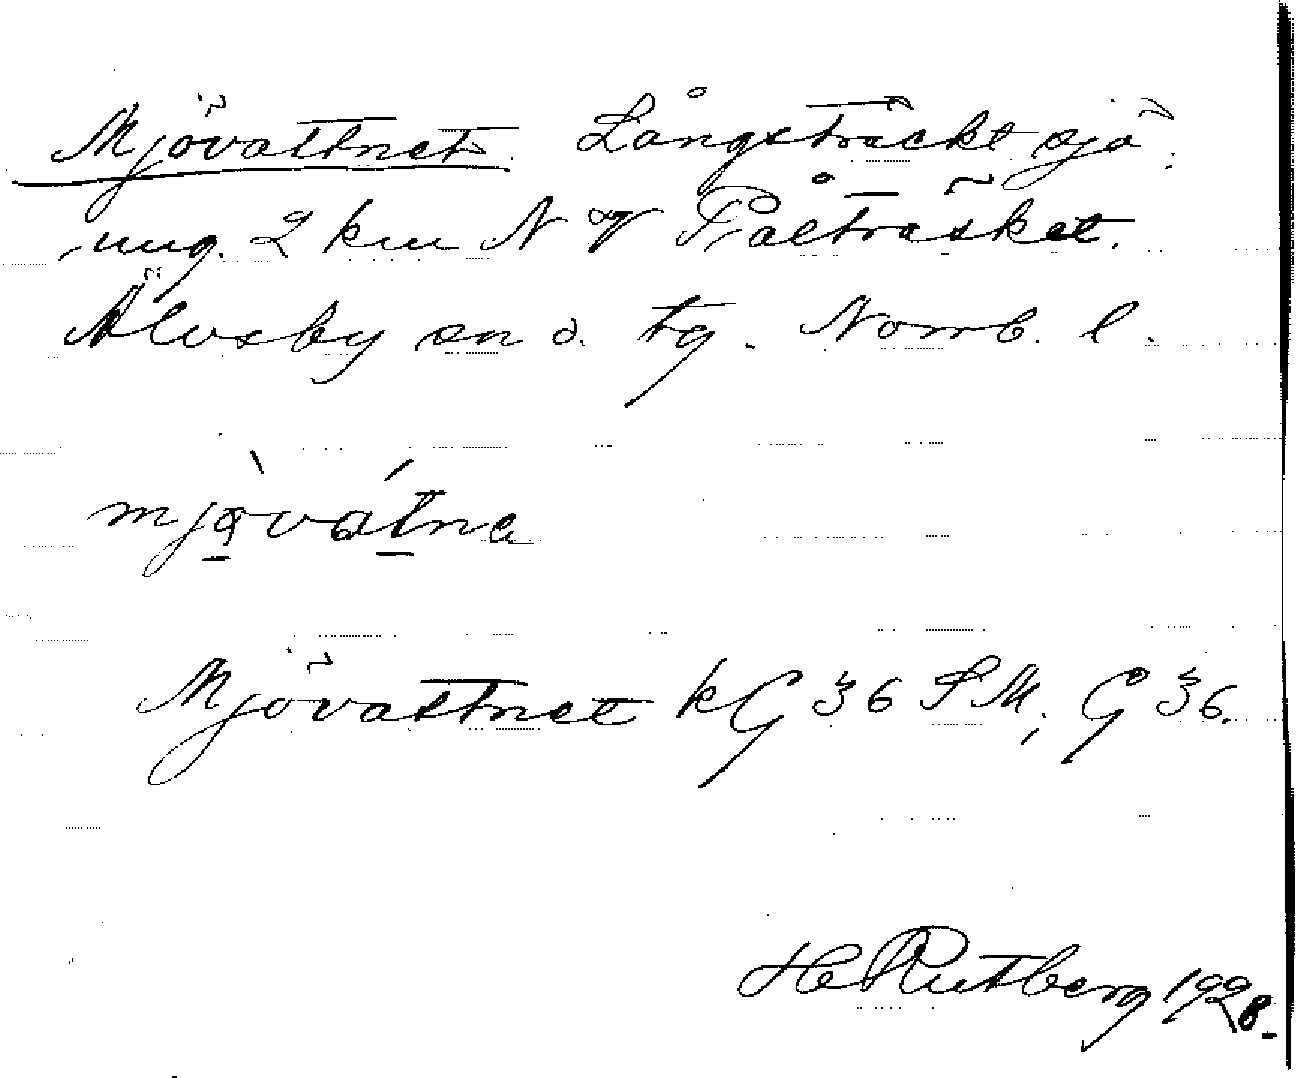 Mjövattnet. Långsträckt sjö
ung. 2 km N V Pålträsket.
Älvsby sn o. tg. Norrb. l.
mjø̀vátnɑ
Mjövattnet kG 36 SM, G 36.
H Rutberg 1928.